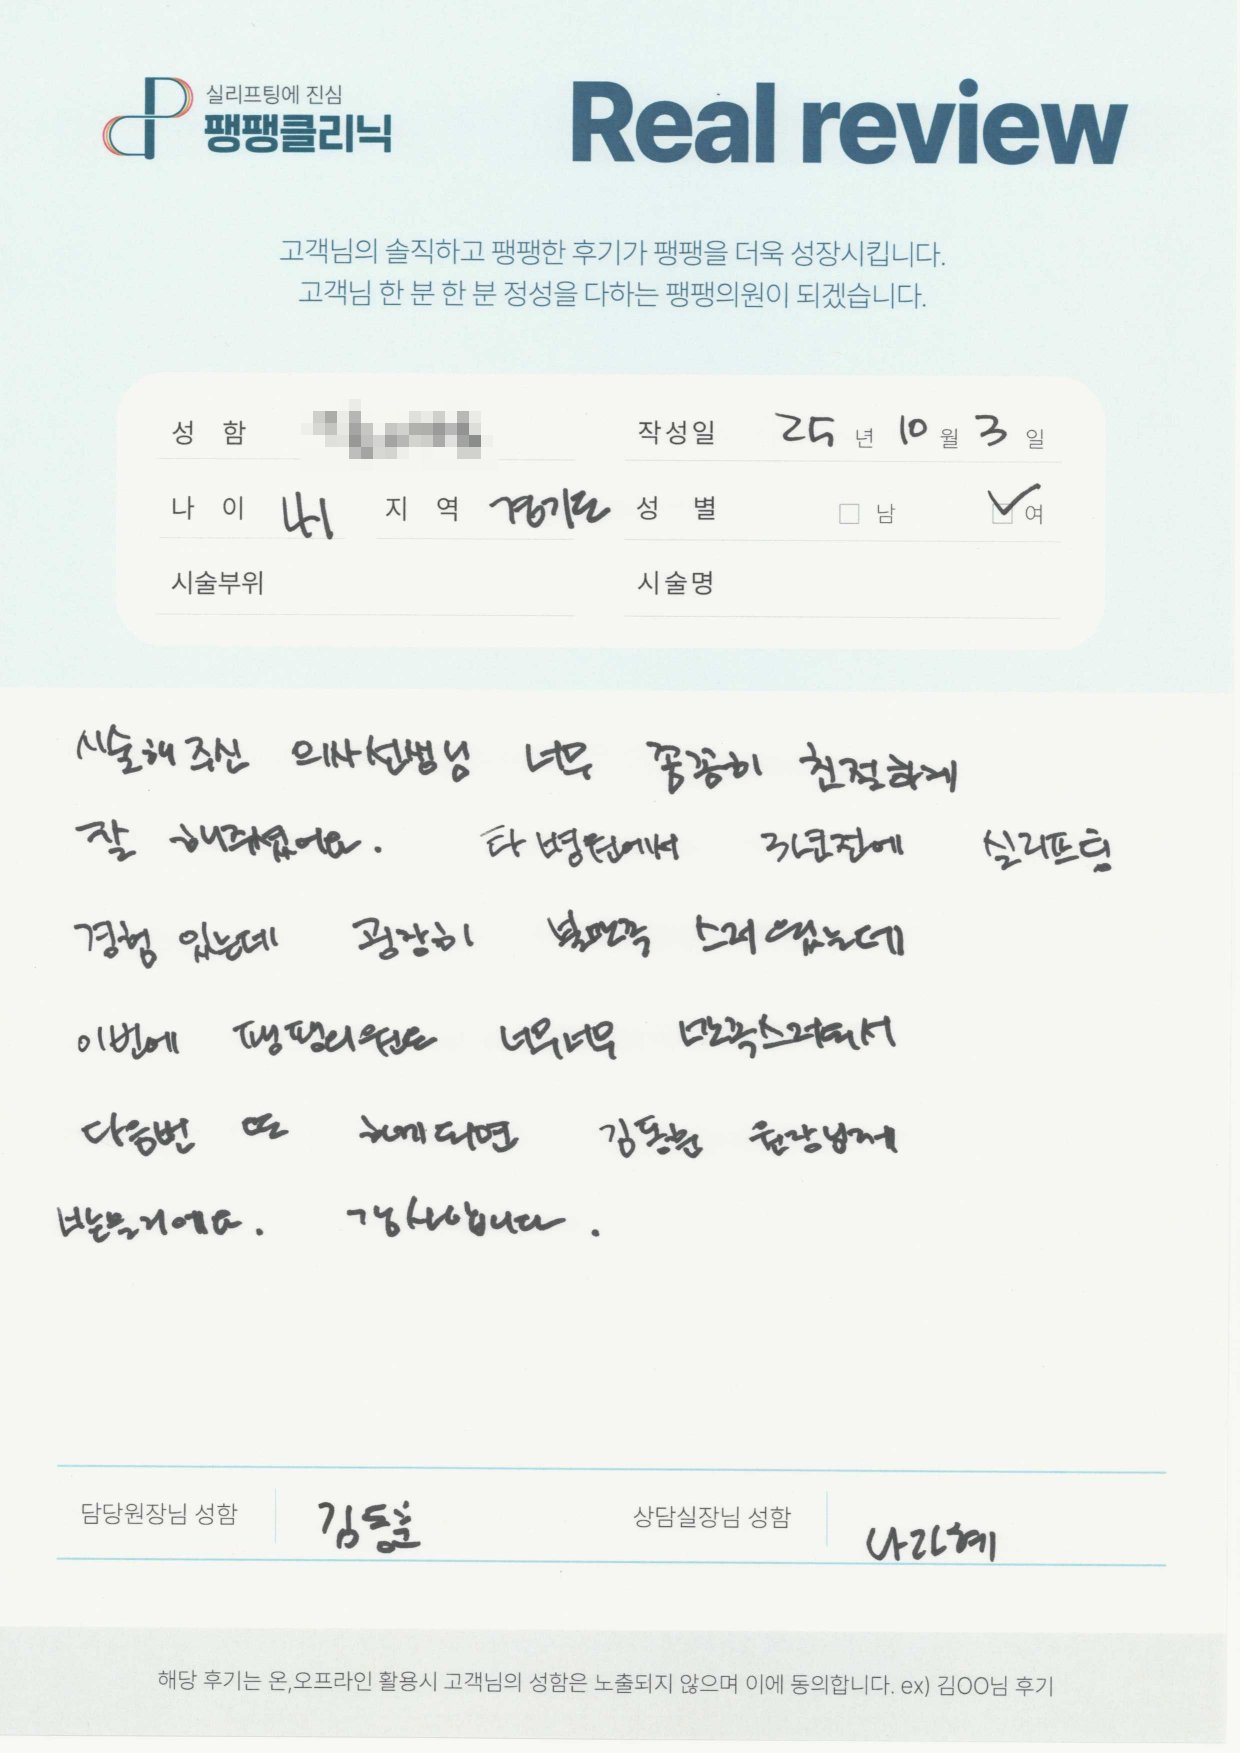 실리프팅에 진심
팽팽클리닉
Real review
고객님의 솔직하고 팽팽한 후기가 팽팽을 더욱 성장시킵니다.
고객님 한 분 한 분 정성을 다하는 팽팽의원이 되겠습니다.
성 함 작성일 25 년 10 월 3 일
나 이 지 역 경기도 성 별 남 여
시술부위 시술명
시술해 주신 의사선생님 너무 꼼꼼히 친절하게
잘 해주셨어요. 타 병원에서 3년전에 실리프팅
경험 있는데 굉장히 불만족 스러웠는데
이번에 팽팽의원은 너무너무 만족스러워서
다음번 또 하게되면 김동훈 원장님께
받를리에요. 감사합니다.
담당원장님 성함 김동훈 상담실장님 성함 나라혜
해당 후기는 온,오프라인 활용시 고객님의 성함은 노출되지 않으며 이에 동의합니다. ex) 김OO님 후기